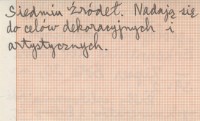 Siedmiu Źródeł. Nadają się
do celów dekoracyjnych i
artystycznych.